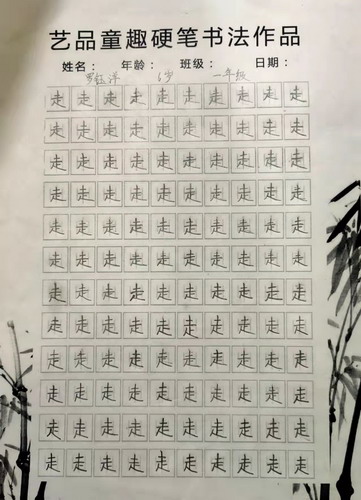 艺品童趣硬笔书法作品
姓名： 年龄： 班级： 日期：
罗钰洋 6岁 一年级
走走走走走走走走走走
走走走走走走走走走走
走走走走走走走走走走
走走走走走走走走走走
走走走走走走走走走走
走走走走走走走走走走
走走走走走走走走走走
走走走走走走走走走走
走走走走走走走走走走
走走走走走走走走走走
走走走走走走走走走走
走走走走走走走走走走